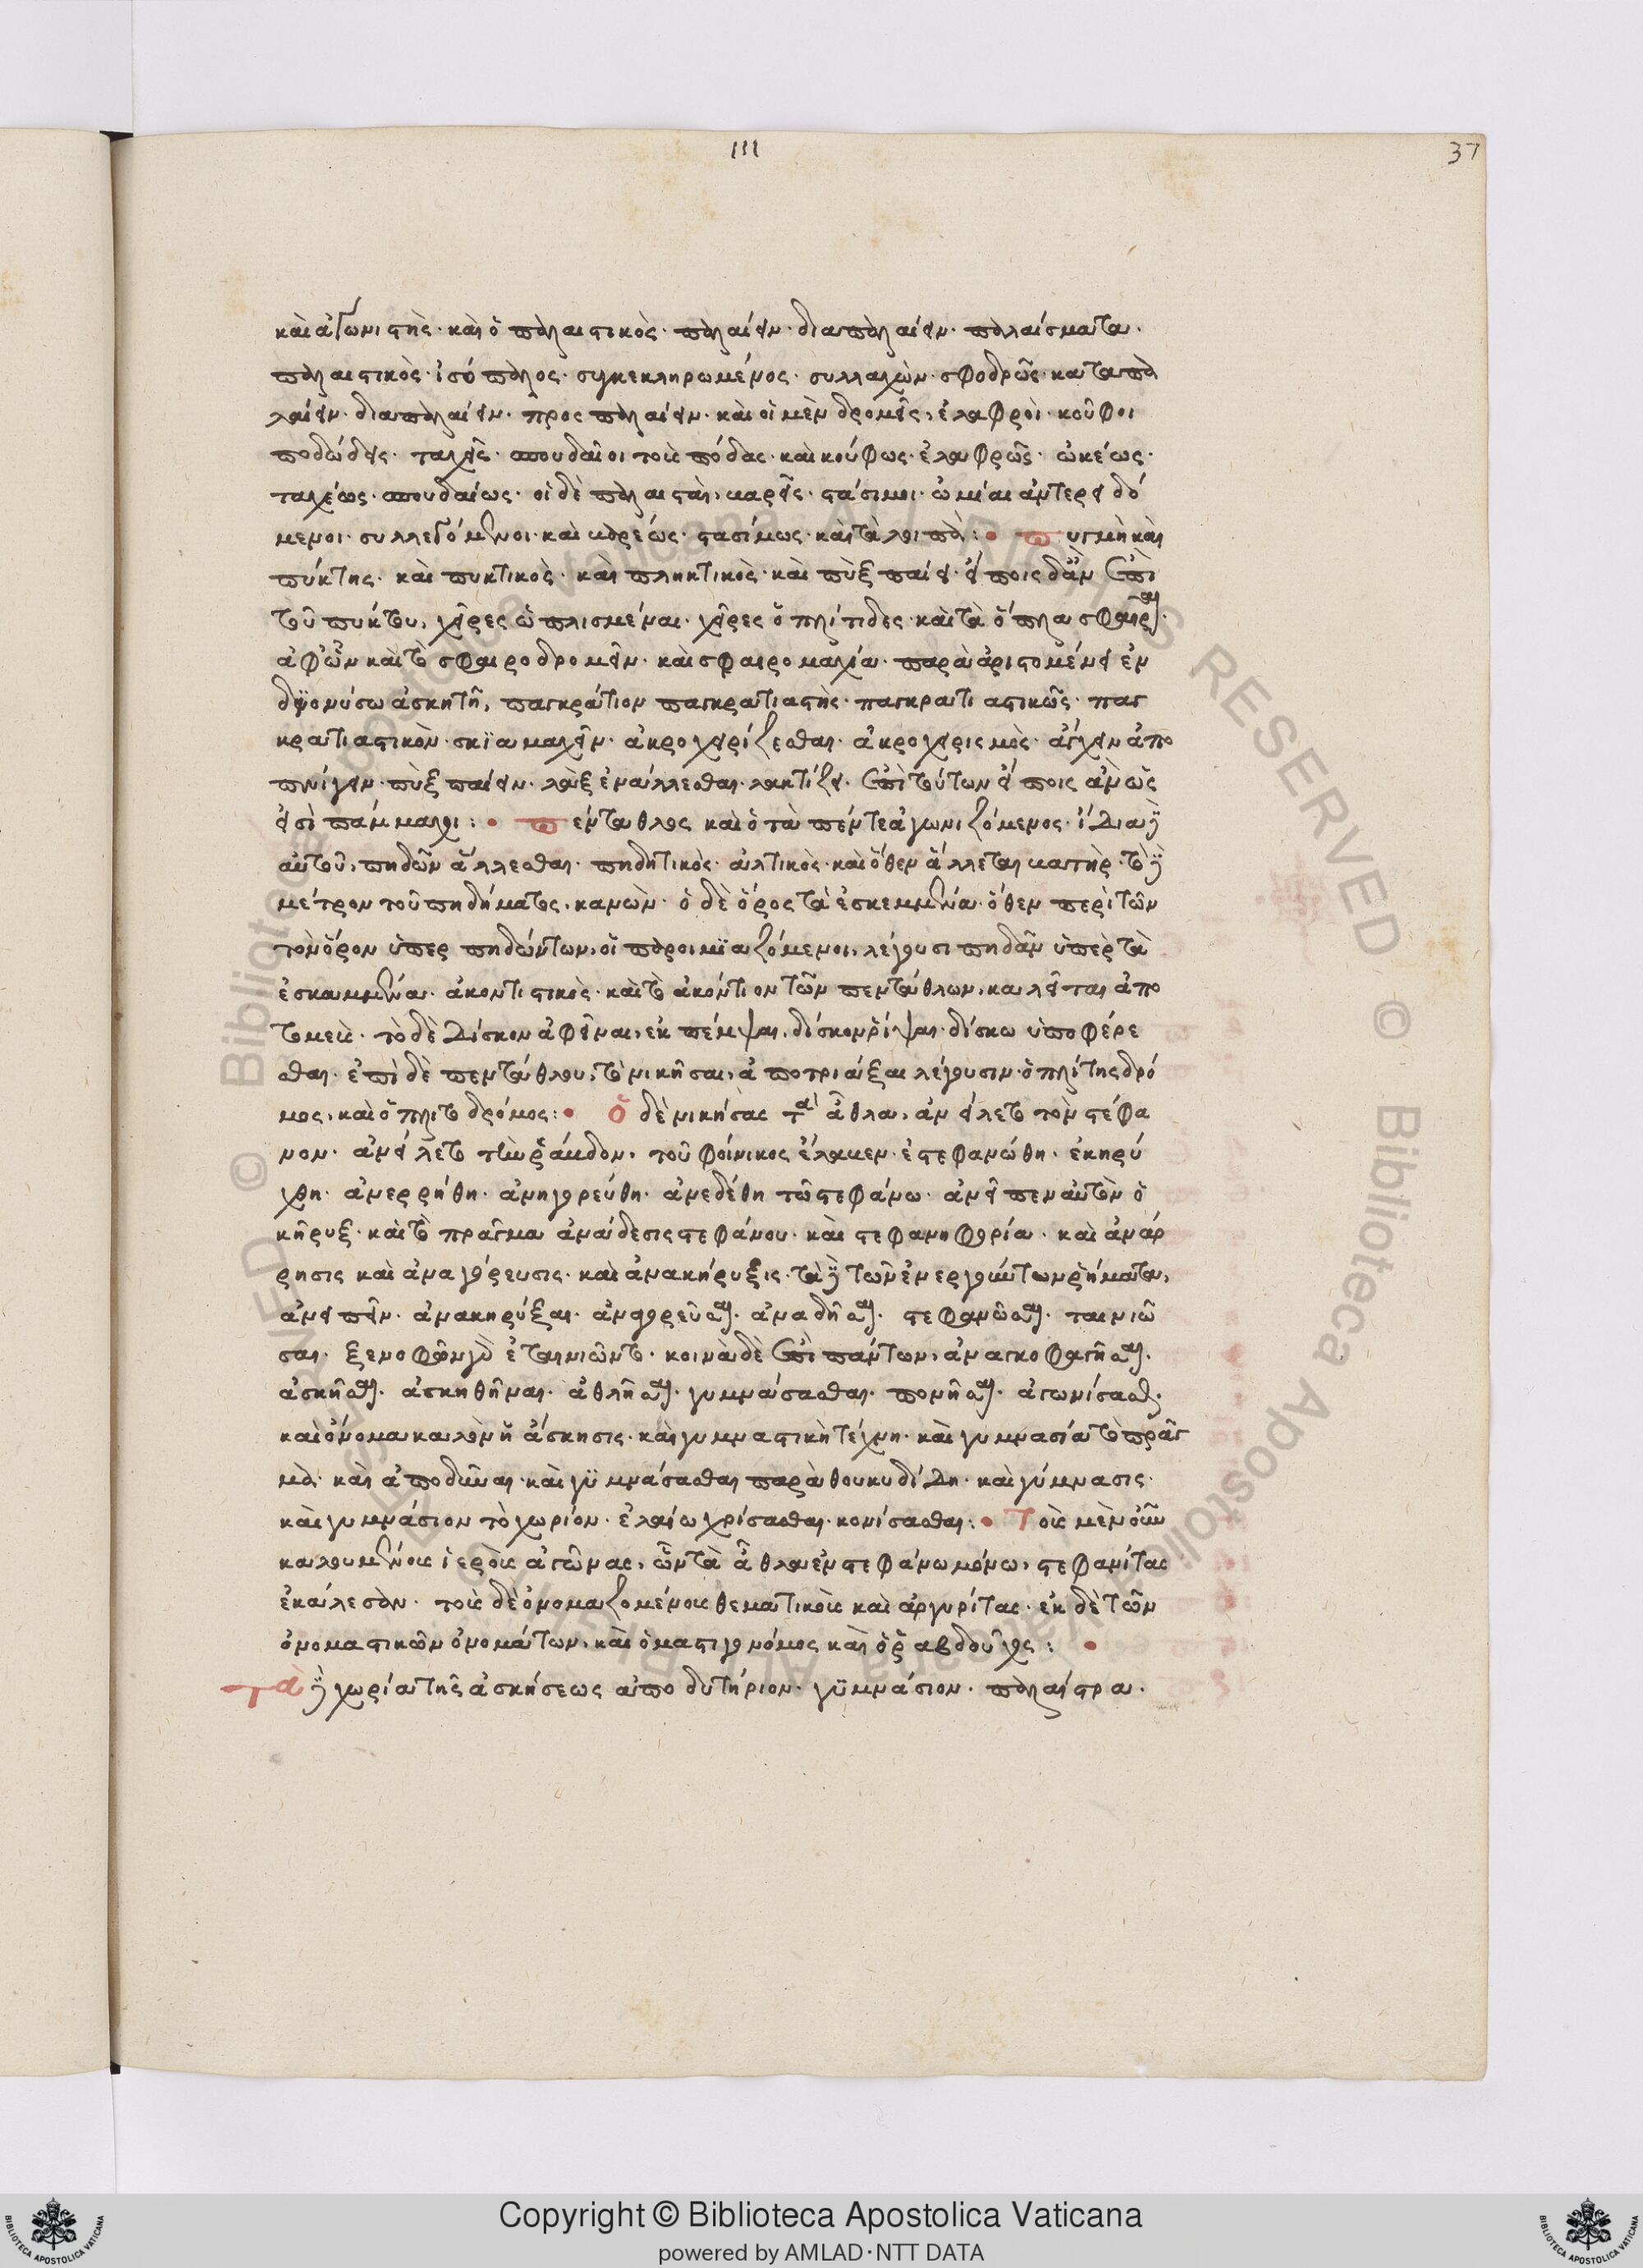 III
37
καὶ ἀγωνιστὴς· καὶ ὁ παλαιστικὸς· παλαίειν· διαπαλαίειν· παλαίσματα·
παλαιστικὸς· ἰσόπαλος· συγκεκληρωμένος· συλλαχὼν· σφοδρῶς· καταπα
λαίειν· διαπαλαίειν· προσπαλαίειν· καὶ οἱ μὲν δρομεῖς, ἐλαφροὶ· κοῦφοι
ποδώδεις· ταχεῖς· σπουδαῖοι τοὺς πόδας· καὶ κούφως· ἐλαφρῶς· ὠκέως·
ταχέως· σπουδαίως· οἱ δὲ παλαισταὶ, βαρεῖς· στάσιμοι· ὠμίαι ἀντερειδό
μενοι· συλλεγόμενοι· καὶ βαρέως· στασίμως· καὶ τὰ λοιπά: • πυγμὴ καὶ
πύκτης· καὶ πυκτικὸς· καὶ πληκτικὸς· καὶ πὺξ παίει· εἴποις δ' ἂν ἐπὶ
τοῦ πύκτου, χεῖρες ὡπλισμέναι· χεῖρες ὁπλίτιδες· καὶ τὰ ὅπλα σφαῖραι·
ἀφ' ὧν καὶ τὸ σφαιροδρομεῖν· καὶ σφαιρομαχία· παρὰ ἀριστομένει ἐν
διονύσω ἀσκητῆ, παγκράτιον παγκρατιαστὴς· παγκρατιαστικῶς· παγ
κρατιαστικὸν· σκϊαμαχεῖν· ἀκροχειρίζεσθαι· ἀκροχειρισμὸς· ἄγχειν ἀπο
πνίγειν· πὺξ παίειν· λὰξ ἐνάλλεσθαι· λακτίζει· ἐπὶ τούτων εἴποις ἂν ὥς
εἰσὶ πάμμαχοι: • πένταθλος καὶ ὁ τὰ πέντε ἀγωνιζόμενος· ἴδια δὲ
αὐτοῦ, πηδῶν ἄλλεσθαι· πηδητικὸς· ἁλτικὸς· καὶ ὅθεν ἄλλεται βατὴρ· τὸ δὲ
μέτρον τοῦ πηδήματος, κανὼν· ὁ δὲ ὅρος τὰ ἐσκεμμένα· ὅθεν περὶ τῶν
τὸν ὅρον ὑπερπηδώντων, οἱ παροιμϊαζόμενοι, λέγουσι πηδᾶν ὑπὲρ τὰ
ἐσκαμμένα· ἀκοντιστικὸς· καὶ τὸ ἀκόντιον τῶν πεντάθλων, καλεῖται ἀπο
τομεὺς· τὸ δὲ δίσκον ἀφεῖναι, ἐκπέμψαι, δίσκον ῥίψαι· δίσκω ὑποφέρε
σθαι· ἐπὶ δὲ πεντάθλου, τὸ νικῆσαι, ἀποτριάξαι λέγουσιν· ὁπλίτης δρό
μος, καὶ ὁπλιτοδρόμος: • Ὁ δὲ νικήσας τὰ ἆθλα, ἀνείλετο τὸν στέφα
νον· ἀνείλετο τὴν ῥάβδον, τοῦ φοίνικος ἔλαβεν· ἐστεφανώθη· ἐκηρύ
χθη· ἀνερρήθη· ἀνηγορεύθη· ἀνεδέθη τῶ στεφάνω· ἀνεῖπεν αὐτὸν ὁ
κῆρυξ· καὶ τὸ πρᾶγμα ἀνάδεσις στεφάνου· καὶ στεφανηφορία· καὶ ἀνάρ
ρησις καὶ ἀναγόρευσις· καὶ ἀνακήρυξις· τὰ δὲ τῶν ἐνεργούντων ῥήματα,
ἀνειπεῖν· ἀνακηρύξαι· ἀναγορεῦσαι· ἀναδῆσαι· στεφανῶσαι· ταινιῶ
σαι· ξενοφῶν γὰρ ἐταινιοῦντο· κοινὰ δὲ ἐπὶ πάντων, ἀναγκοφαγῆσαι·
ἀσκῆσαι· ἀσκηθῆναι· ἀθλῆσαι· γυμνάσασθαι· πονῆσαι· ἀγωνίσασθαι·
καὶ ὄνομα καλὸν ἡ ἄσκησις· καὶ γυμναστικὴ τέχνη· καὶ γυμνασία τὸ πρᾶγ
μα· καὶ ἀποδῦναι· καὶ γϋμνάσασθαι παρὰ θουκυδίδη· καὶ γύμνασις·
καὶ γυμνάσιον τὸ χωρίον· ἐλαίω χρίσασθαι· κονίσασθαι: • Τοὺς μὲν οὖν
καλουμένους ἱεροὺς ἀγῶνας, ὧν τὰ ἆθλα ἐν στεφάνω μόνω, στεφανίτας
ἐκάλεσαν· τοὺς δὲ ὀνομαζομένους θεματικοὺς καὶ ἀργυρίτας· ἐκ δὲ τῶν
ὀνομαστικῶν ὀνομάτων, καὶ ὁ μαστιγονόμος καὶ ὁ ῥαβδοῦχος: •
Τὰ δὲ χωρία τῆς ἀσκήσεως ἀποδυτήριον· γϋμνάσιον· παλαίστρα·
© Biblioteca Apostolica Vaticana ALL RIGHTS RESERVED © Biblioteca Apostolica Vaticana ALL RIGHTS RESERVED
Copyright © Biblioteca Apostolica Vaticana
powered by AMLAD·NTT DATA
BIBLIOTECA APOSTOLICA VATICANA
BIBLIOTECA APOSTOLICA VATICANA